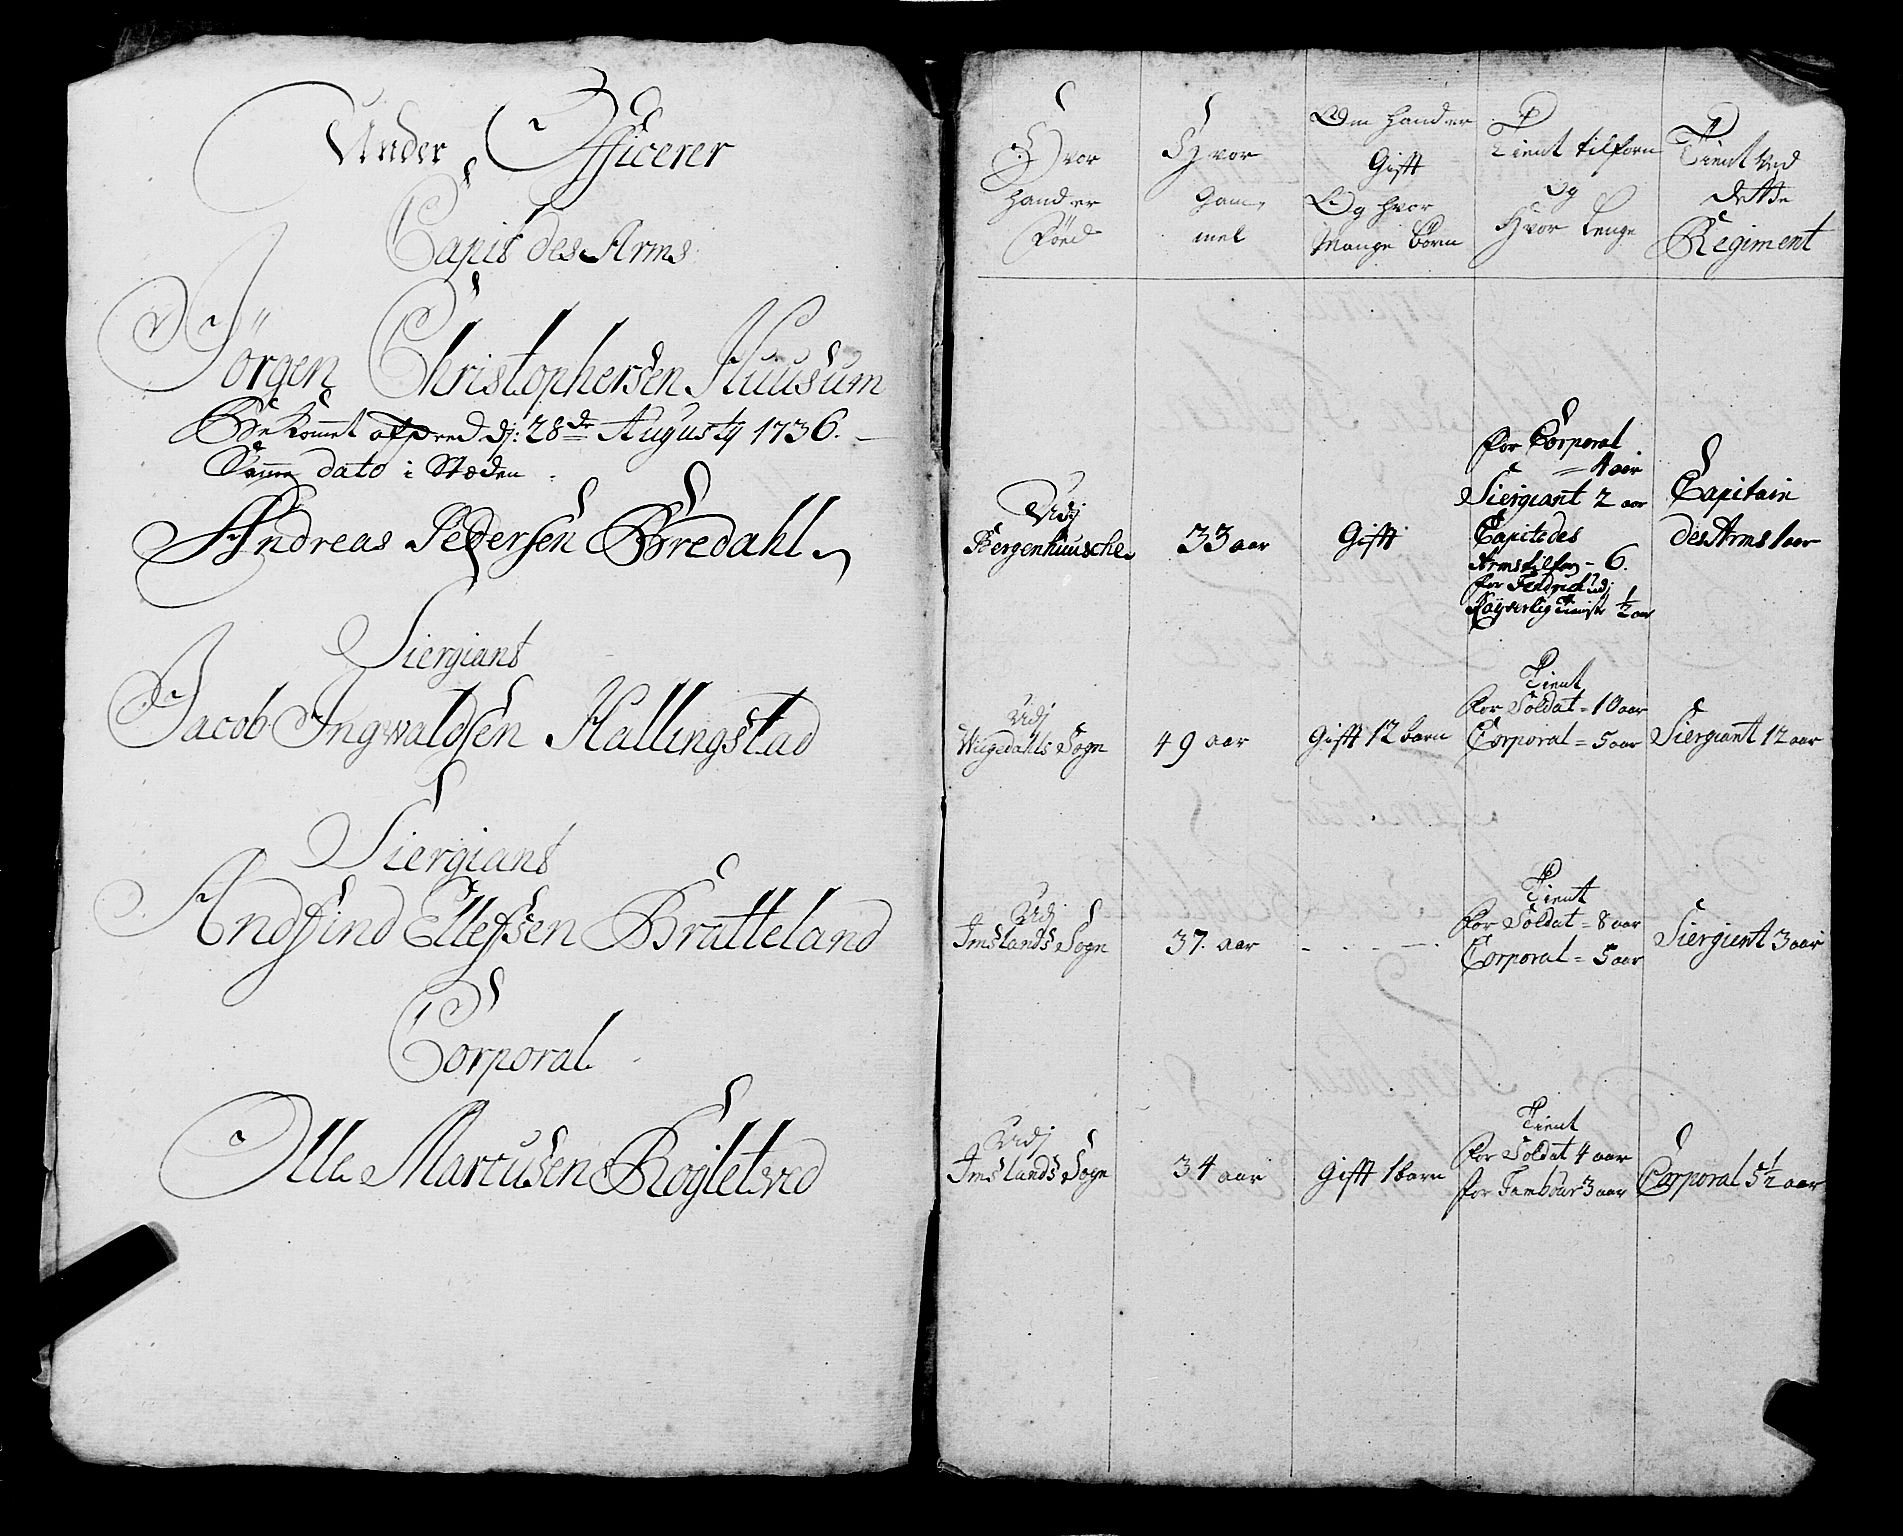 Under Officerer
Capit des Arms
Jörgen Christophersen Huusum
Bekommet afsked dj: 28de Augusty 1736.
Samme dato i Stæden
Andreas Pedersen Bredahl
Siergiant
Jacob Ingwaldsen Hallingstad
Siergiant
Andfind Ellefsen Bratteland
Corporal
Olle Marcusen Røgletved
Hvor
hand er
Føed
Hvor
Gam,
mel
Om hand er
Gifft
Og hvor
Mange børn
Tient tilforn
og
Hvor Lenge
Tient ved
dette
Regiment
Udj
Bergenhuusche
33 aar
Gifft
for Corporal
= 4 aar
Siergiant 2 aar
Capit des
Arms tilforn - 6.
for Fendrich udj
Kayserlig Tieniste ½ aar
Capitain
des Arms 1 aar
Udj
Wigedahls Sogn
49 aar
Gifft 12 barn
Tient
for Soldat = 10 aar
Corporal = 5 aar
Siergiant 12 aar
Udj
Imslands Sogn
37. aar
Tient
for Soldat = 8 aar
Corporal = 5 aar
Siergient 3 aar
Udj
Imslands Sogn
34 aar
Gifft 1 barn
Tient
for Soldat 4 aar
for Tambour 3 aar
Corporal 5½ aar